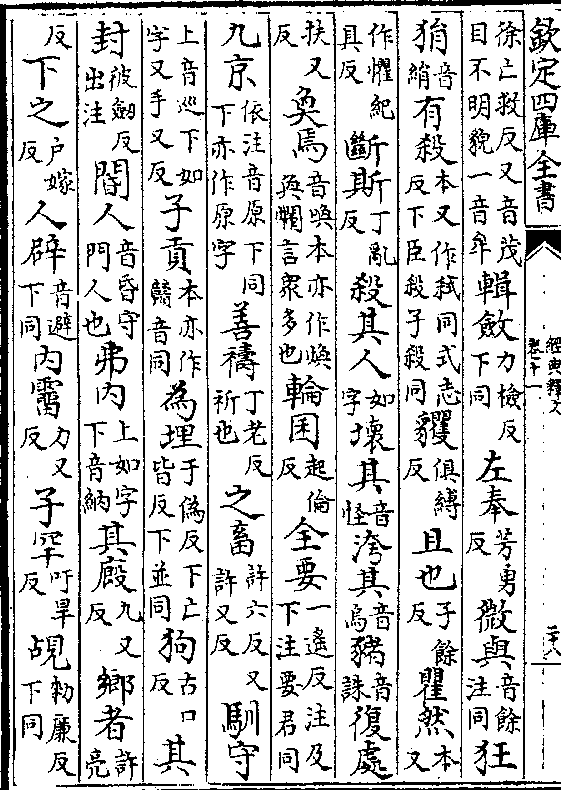 欽定四庫全書
經典釋文
卷十一
二十八
徐亡救反又音茂目不明貌一音牟輯斂力檢反下同左奉芳勇反微與音餘注同狂
狷音絹有殺本又作弑同式志反下臣殺子殺同貜俱縛反且也子餘反瞿然本又
作懼紀具反斷斯丁亂反殺其人如字壞其音怪洿其音烏豬音誅復處
扶又反奐焉音喚本亦作煥奐爛言衆多也輪囷起倫反全要一遙反注及下注要君同
九京依注音原下同下亦作原字善禱丁老反祈也之畜許六反又許又反馴守
上音巡下如字又手又反子貢本亦作贛音同為埋于偽反下亡皆反下並同狗古口反其
封彼劒反出注閽人音昏守門人也弗内上如字下音納其廄九又反鄉者許亮
反下之戶嫁反人辟音避下同内霤力又反子罕吁旱反覘勑廉反下同